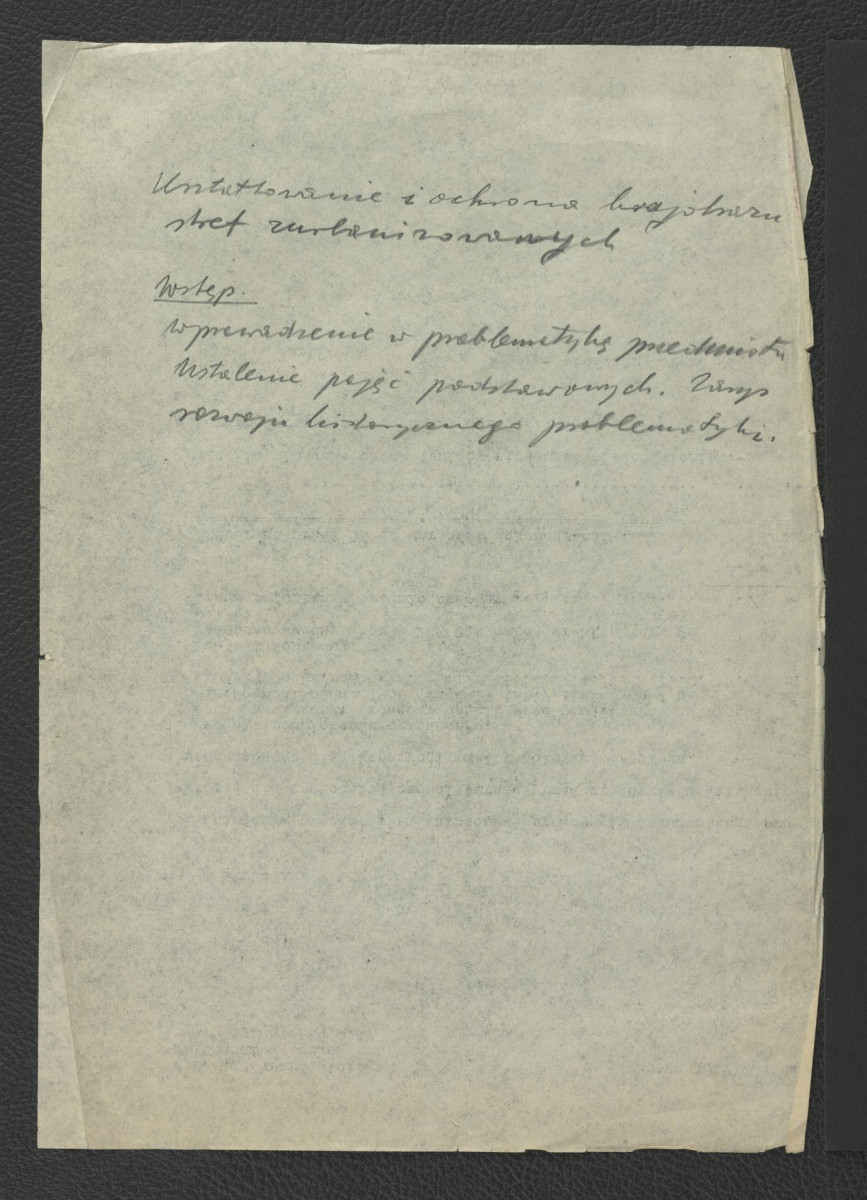 Kształtowanie i ochrona krajobrazu
stref zurbanizowanych
Wstęp.
Wprowadzenie w problematykę przedmiotu
Ustalenie pojęć podstawowych. Zarys
rozwoju historycznego problematyki.